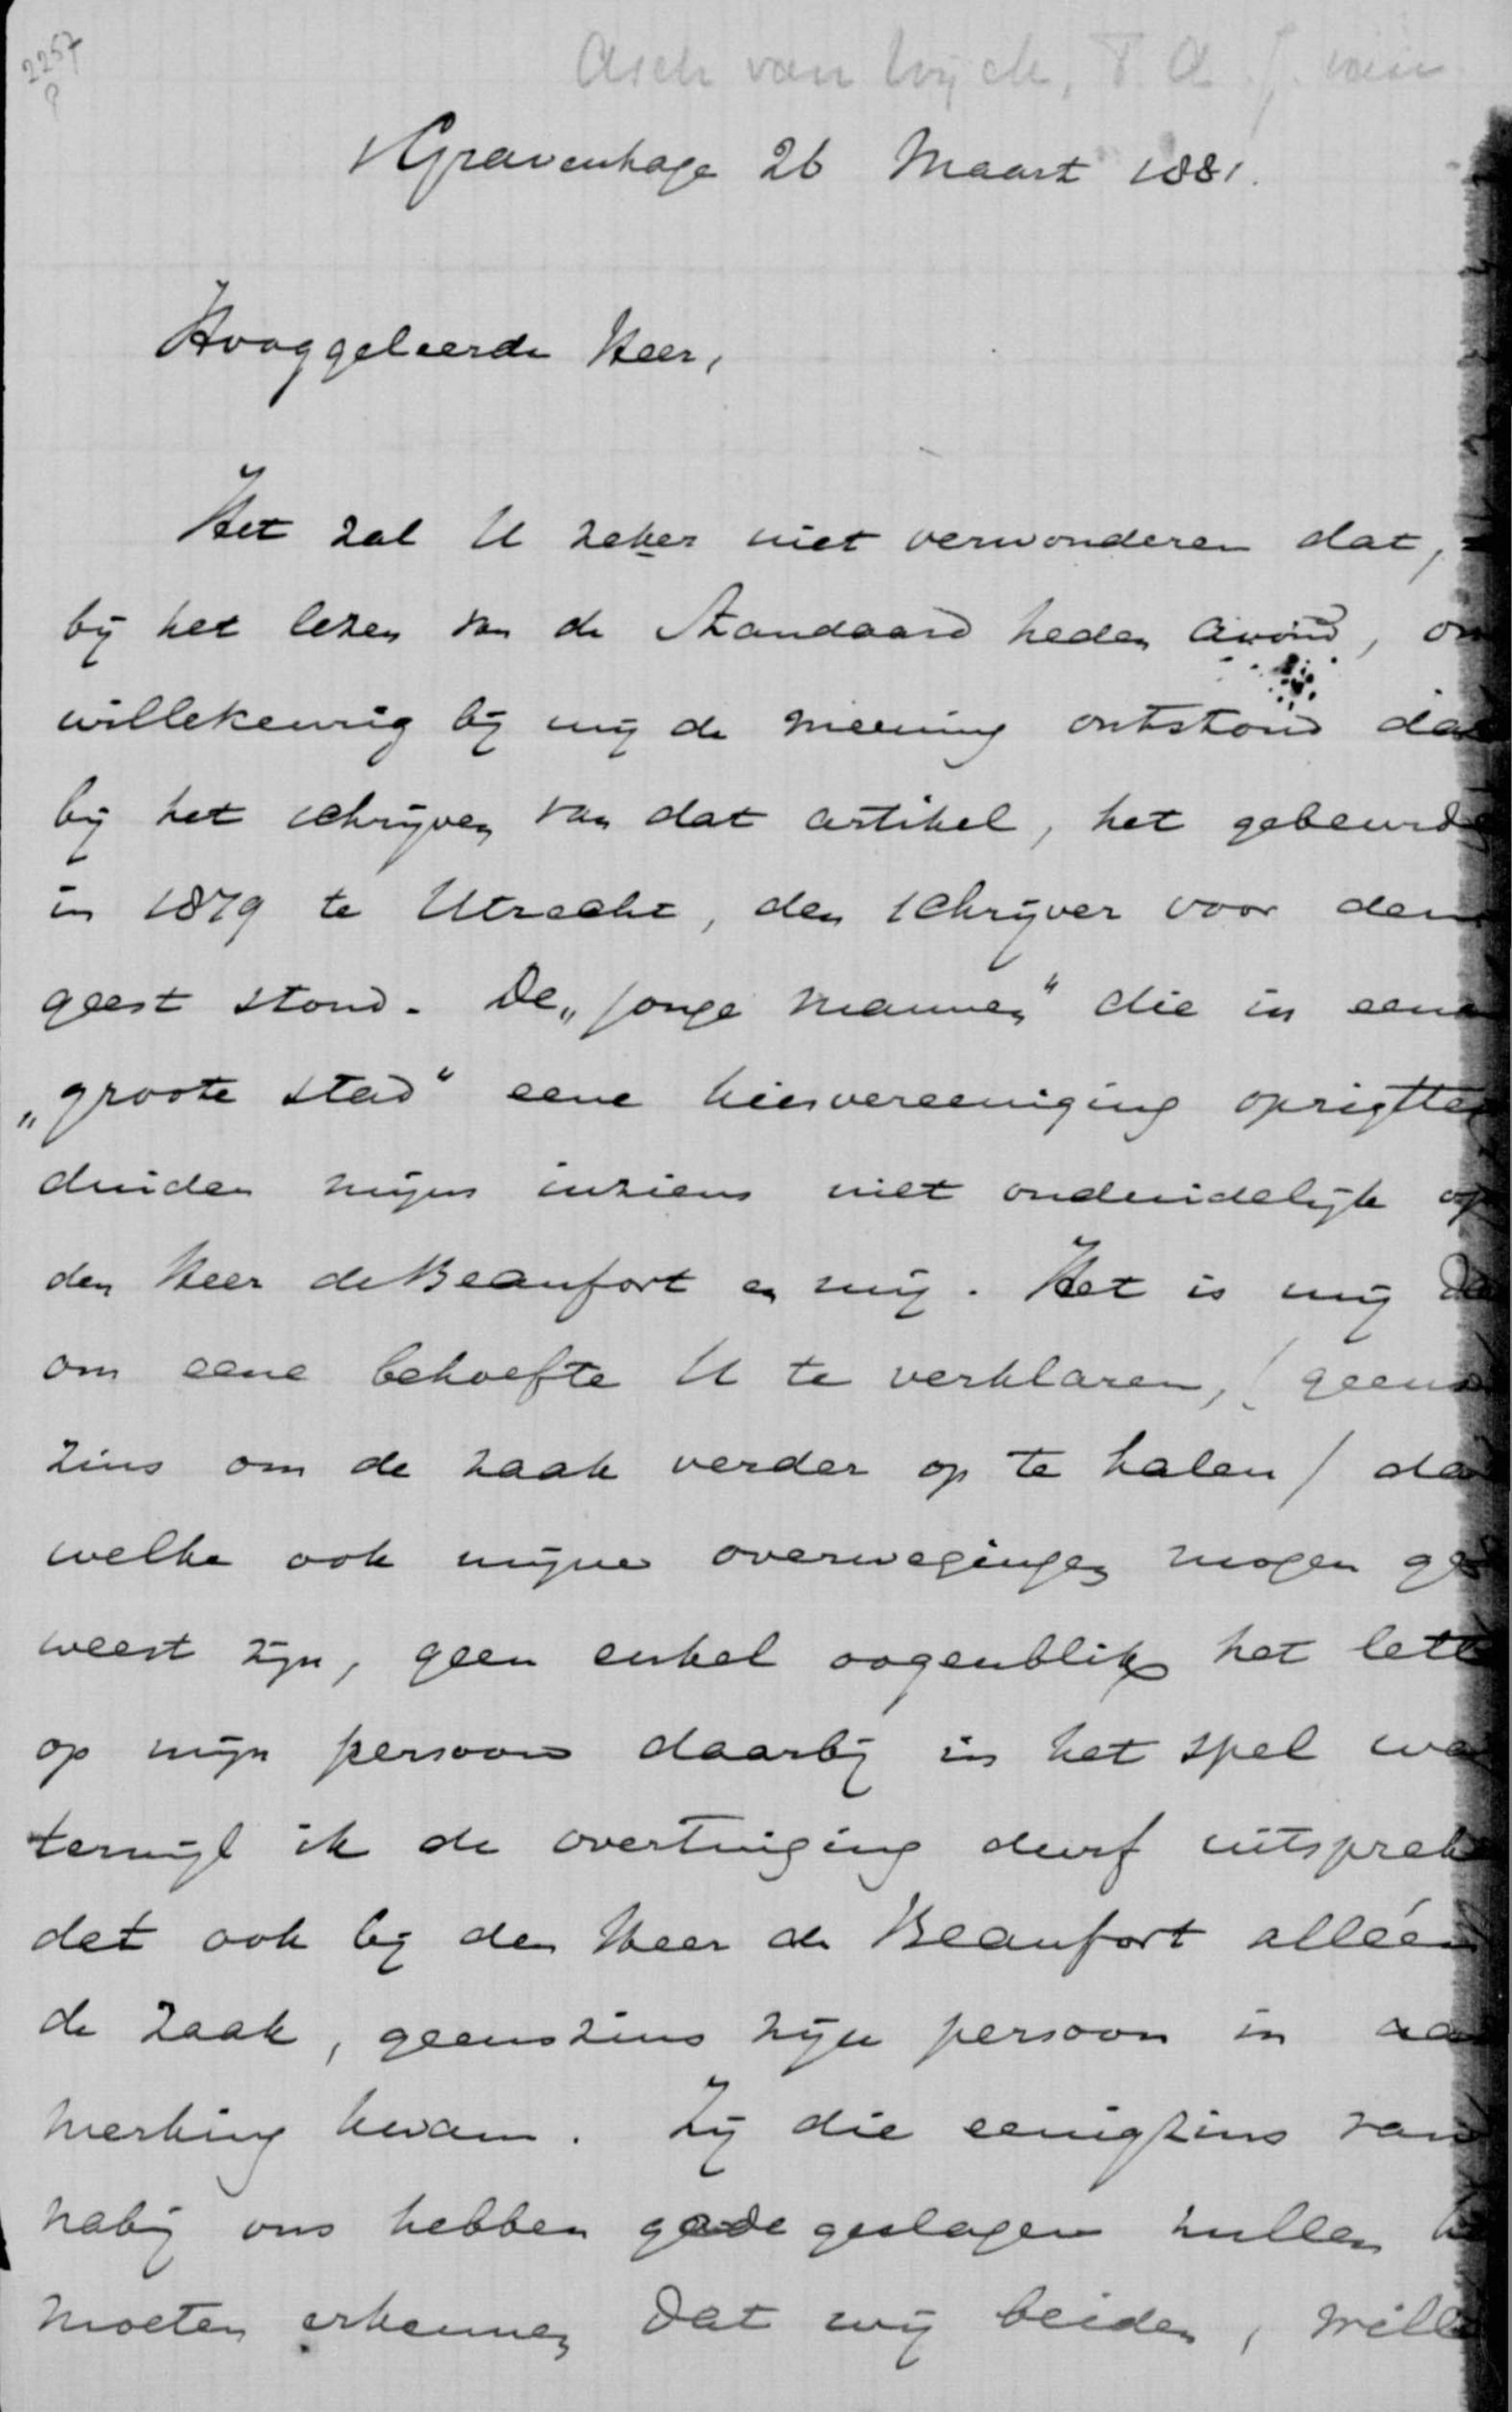 2257
Asch van Wijck, T. A. J. van
s'Gravenhage 26 Maart 1881.
Hooggeleerde Heer,
Het zal U zeker niet verwonderen dat,
bij het lezen van de Standaard heden avond, on
willekeurig bij mij de meening ontstond dat
bij het schrijven van dat artikel, het gebeurde
in 1879 te Utrecht, den schrijver voor den
geest stond. De „jonge mannen" die in eene
„groote stad" eene kiesvereeniging oprigtten
duiden mijns inziens niet onduidelijk op
den Heer de Beaufort en mij. Het is mij da
om eene behoefte U te verklaren, (geens
zins om de zaak verder op te halen) da
welke ook mijne overwegingen mogen ge
weest zijn, geen enkel oogenblik het lett
op mijn persoon daarbij in het spel wa
terwijl ik de overtuiging durf uitsprek
dat ook bij den Heer de Beaufort alléén
de zaak, geenszins zijn persoon in aan
merking kwam. Zij die eenigzins van
nabij ons hebben gadegeslagen zullen he
moeten erkennen dat wij beiden, wille